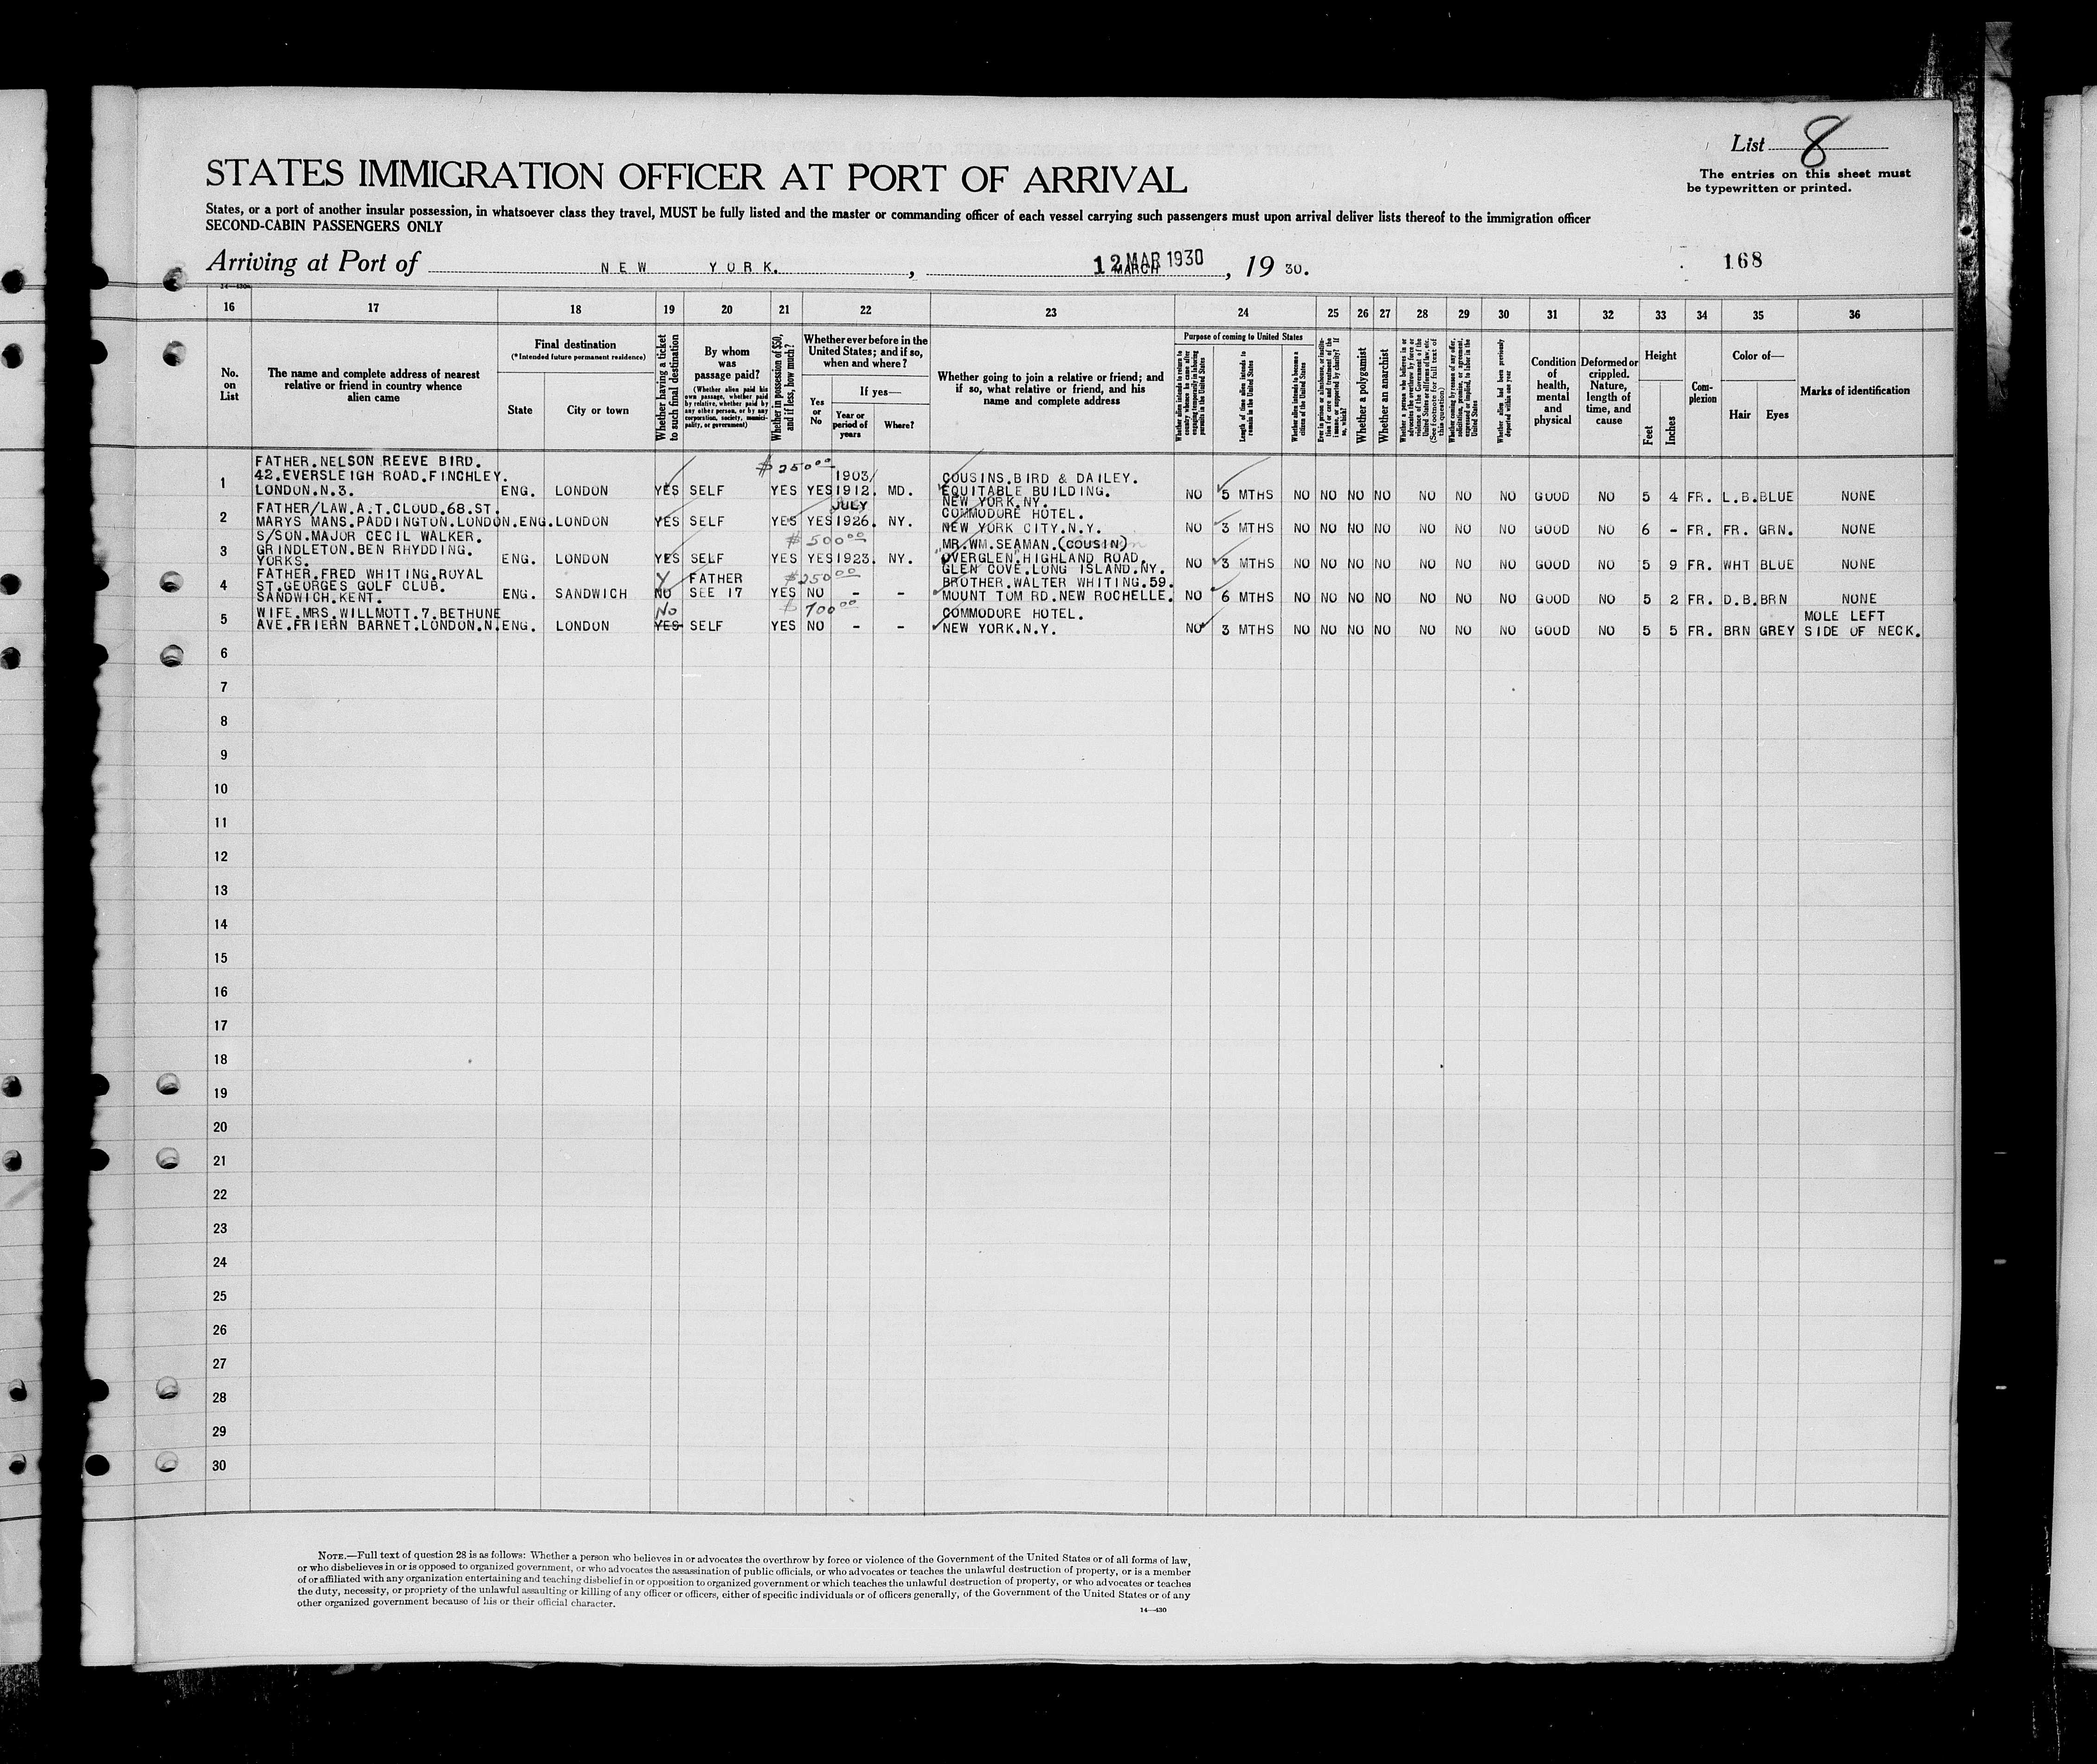 List 8
The entries on this sheet must
be typewritten or printed.
STATES IMMIGRATION OFFICER AT PORT OF ARRIVAL
States, or a port of another insular possession, in whatsoever class they travel, MUST be fully listed and the master or commanding officer of each vessel carrying such passengers must upon arrival deliver lists thereof to the immigration officer
SECOND-CABIN PASSENGERS ONLY
Arriving at Port of NEW YORK. , 12 MAR 1930 MARCH , 19 30.
168
14—430
16 17 18 19 20 21 22 23 24 25 26 27 28 29 30 31 32 33 34 35 36
No.
on
List
The name and complete address of nearest
relative or friend in country whence
alien came
Final destination
(*Intended future permanent residence)
State
City or town
Whether having a ticket
to such final destination
By whom
was
passage paid?
(Whether alien paid his
own passage, whether paid
by relative, whether paid by
any other person, or by any
corporation, society, munici-
pality, or government)
Whether in possession of $50,
and if less, how much?
Whether ever before in the
United States; and if so,
when and where?
Yes
or
No
If yes—
Year or
period of
years
Where?
Whether going to join a relative or friend; and
if so, what relative or friend, and his
name and complete address
Purpose of coming to United States
Whether alien intends to return to
country whence he came after
engaging temporarily in laboring
pursuits in the United States
Length of time alien intends to
remain in the United States
Whether alien intends to become a
citizen of the United States
Ever in prison or almshouse, or institu-
tion for care and treatment of the
insane, or supported by charity? If
so, which?
Whether a polygamist
Whether an anarchist
Whether a person who believes in or
advocates the overthrow by force or
violence of the Government of the
United States or all forms of law, etc.
(See footnote for full text of
this question)
Whether coming by reason of any offer,
solicitation, promise, or agreement,
expressed or implied, to labor in the
United States
Whether alien had been previously
deported within one year
Condition
of
health,
mental
and
physical
Deformed or
crippled.
Nature,
length of
time, and
cause
Height
Feet
Inches
Com-
plexion
Color of—
Hair
Eyes
Marks of identification
FATHER.NELSON REEVE BIRD.
42.EVERSLEIGH ROAD.FINCHLEY. $250 00 1903/ COUSINS.BIRD & DAILEY.
1 LONDON.N.3. ENG. LONDON YES SELF YES YES 1912. MD. EQUITABLE BUILDING. NO 5 MTHS NO NO NO NO NO NO NO GOOD NO 5 4 FR. L.B. BLUE NONE
NEW YORK.NY.
FATHER/LAW.A.T.CLOUD.68.ST. JULY COMMODORE HOTEL.
2 MARYS MANS.PADDINGTON.LONDON.ENG. LONDON YES SELF YES YES 1926. NY. NEW YORK CITY.N.Y. NO 3 MTHS NO NO NO NO NO NO NO GOOD NO 6 - FR. FR. GRN. NONE
S/SON.MAJOR CECIL WALKER. $500 00 MR.WM.SEAMAN.(COUSIN)
3 GRINDLETON.BEN RHYDDING. "OVERGLEN".HIGHLAND ROAD.
YORKS. ENG. LONDON YES SELF YES YES 1923. NY. GLEN COVE.LONG ISLAND.NY. NO 3 MTHS NO NO NO NO NO NO NO GOOD NO 5 9 FR. WHT BLUE NONE
FATHER.FRED WHITING.ROYAL Y FATHER $250 00 BROTHER.WALTER WHITING.59.
4 ST.GEORGES GOLF CLUB.
SANDWICH.KENT. ENG. SANDWICH NO SEE 17 YES NO - - MOUNT TOM RD.NEW ROCHELLE. NO 6 MTHS NO NO NO NO NO NO NO GOOD NO 5 2 FR. D.B. BRN NONE
WIFE.MRS.WILLMOTT.7.BETHUNE No $100 00 COMMODORE HOTEL. MOLE LEFT
5 AVE.FRIERN BARNET.LONDON.N. ENG. LONDON YES SELF YES NO - - NEW YORK.N.Y. NO 3 MTHS NO NO NO NO NO NO NO GOOD NO 5 5 FR. BRN GREY SIDE OF NECK.
6
7
8
9
10
11
12
13
14
15
16
17
18
19
20
21
22
23
24
25
26
27
28
29
30
NOTE.—Full text of question 28 is as follows: Whether a person who believes in or advocates the overthrow by force or violence of the Government of the United States or of all forms of law,
or who disbelieves in or is opposed to organized government, or who advocates the assassination of public officials, or who advocates or teaches the unlawful destruction of property, or is a member
of or affiliated with any organization entertaining and teaching disbelief in or opposition to organized government or which teaches the unlawful destruction of property, or who advocates or teaches
the duty, necessity, or propriety of the unlawful assaulting or killing of any officer or officers, either of specific individuals or of officers generally, of the Government of the United States or of any
other organized government because of his or their official character.
14—430